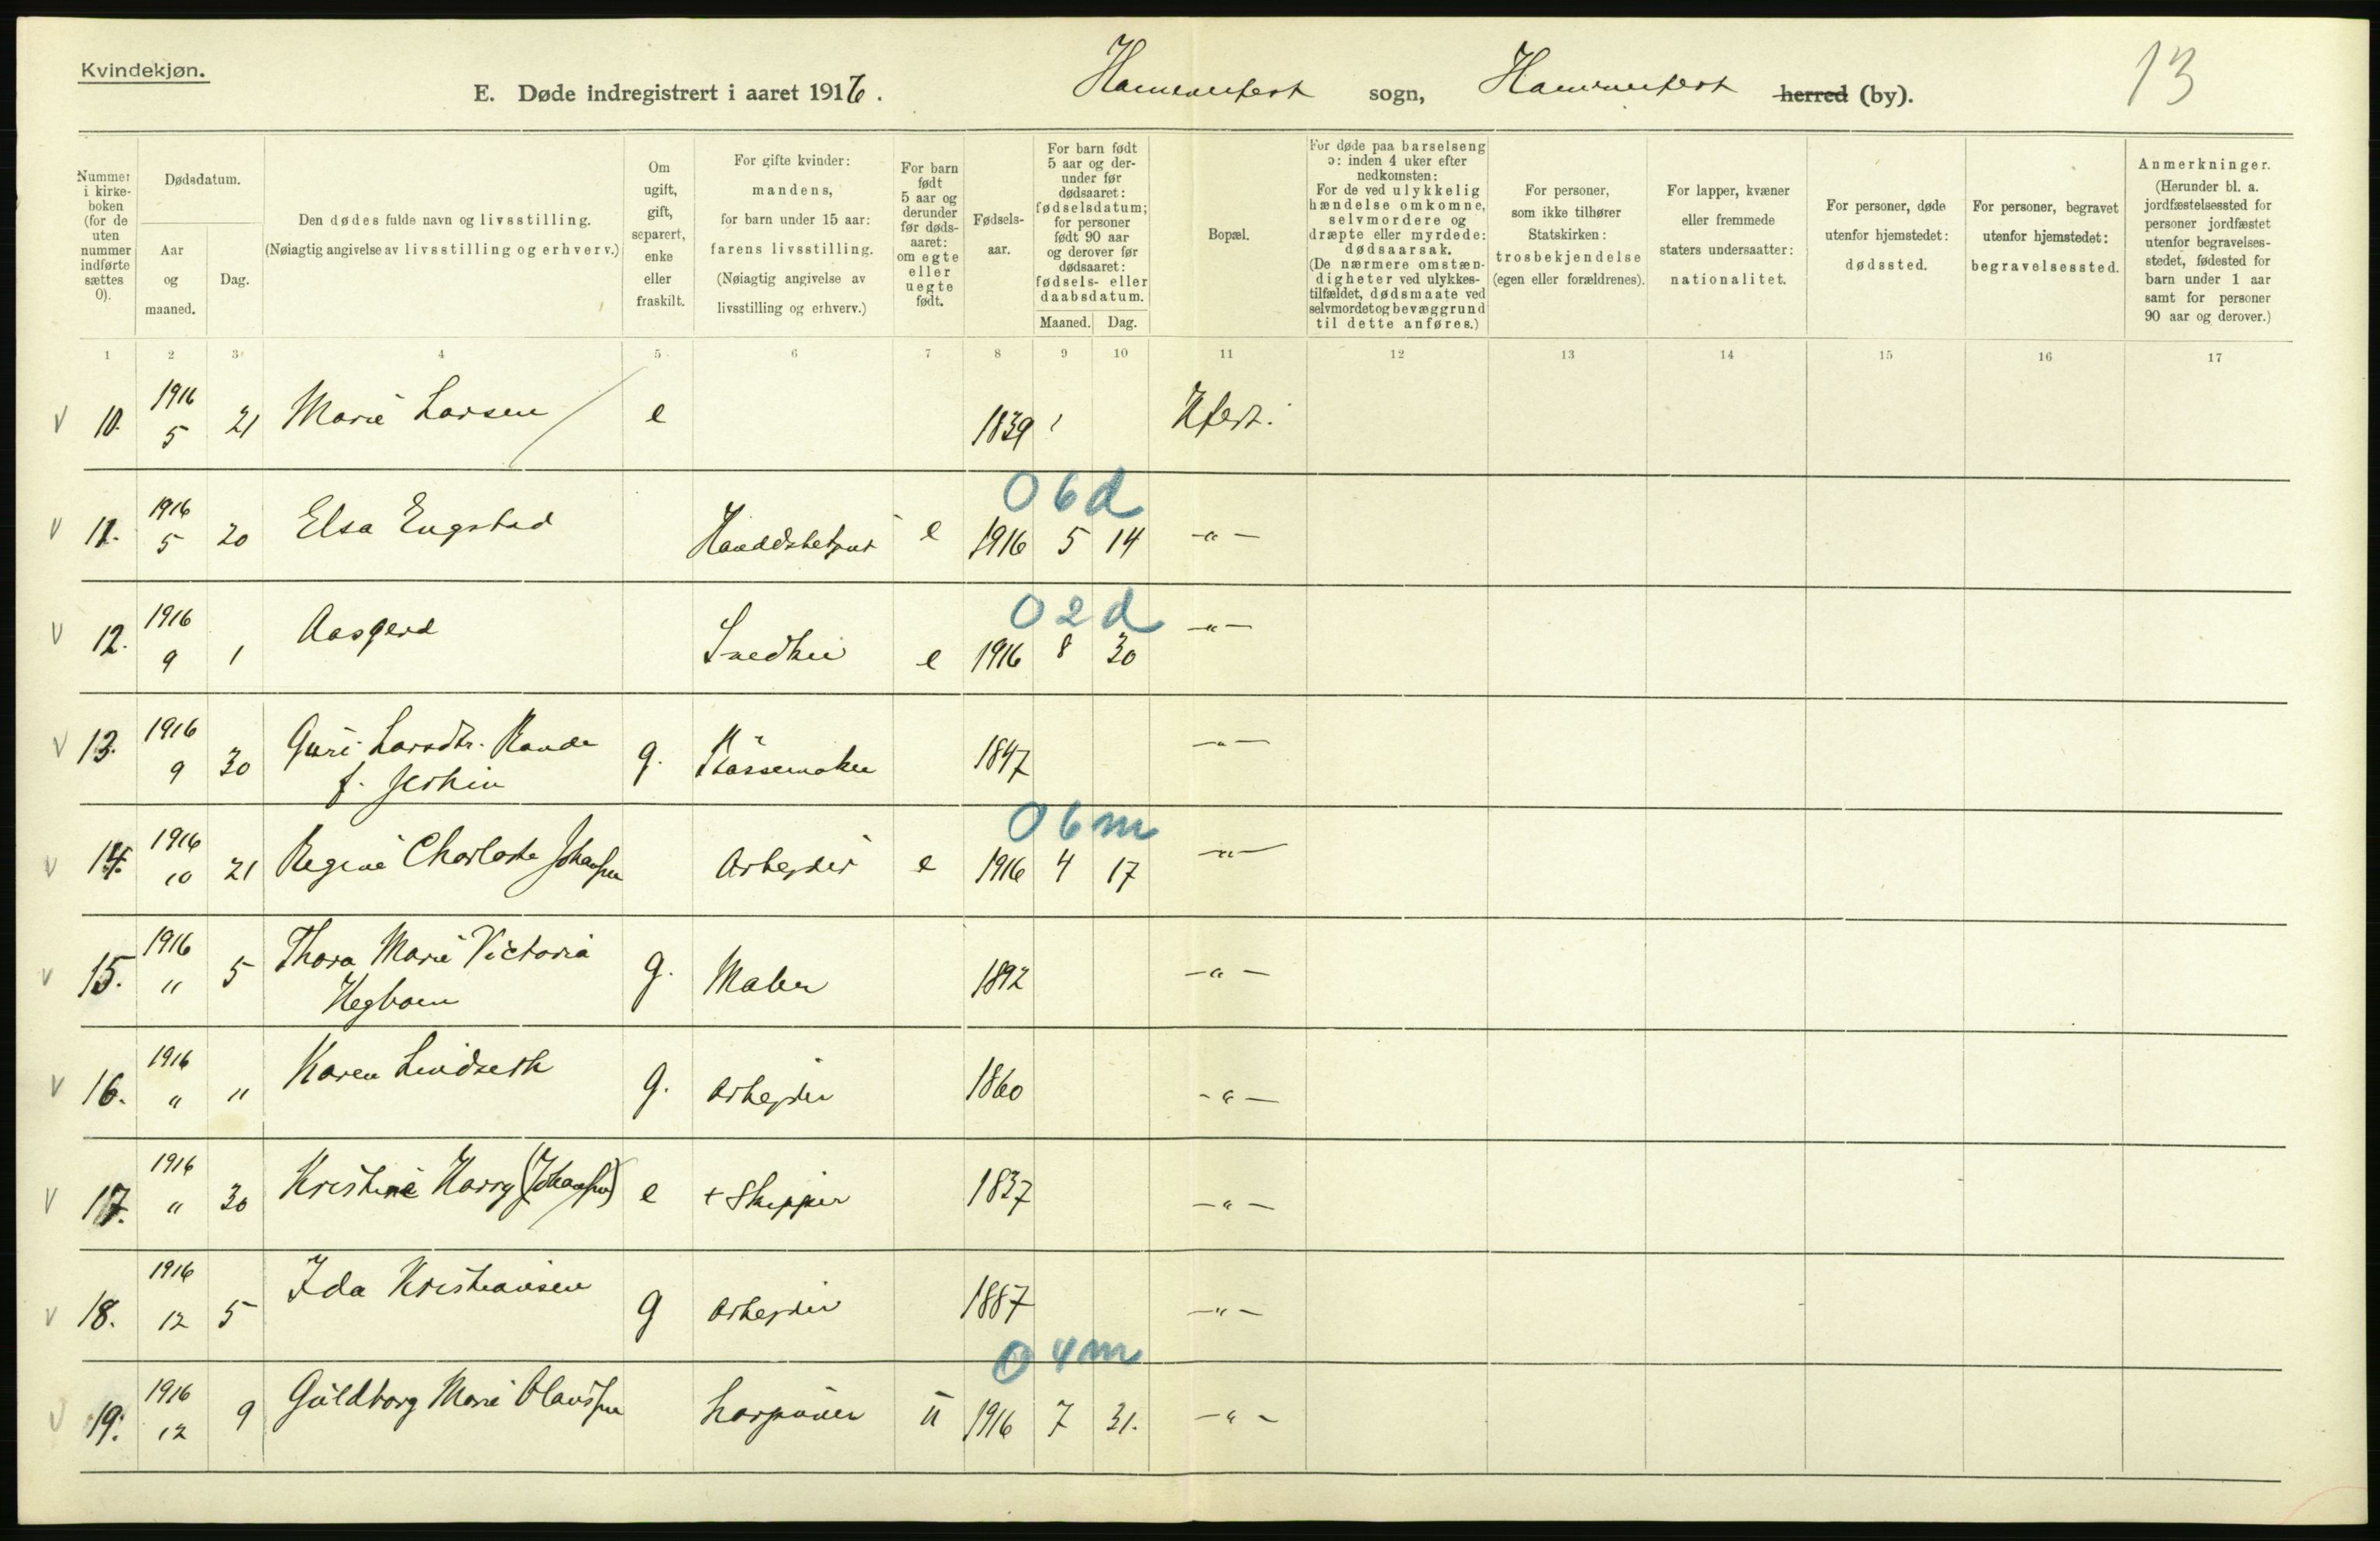 Kvindekjøn.
E. Døde indregistrert i aaret 1916.
Hammerfest sogn, Hammerfest herred (by).
13
Nummer i kirkeboken (for de uten nummer indførte sættes 0).
Dødsdatum.
Aar og maaned.
Dag.
Den dødes fulde navn og livsstilling.
(Nøiagtig angivelse av livsstilling og erhverv.)
Om ugift, gift, separert, enke eller fraskilt.
For gifte kvinder: mandens, for barn under 15 aar: farens livsstilling. (Nøiagtig angivelse av livsstilling og erhverv.)
For barn født 5 aar og derunder før dødsaaret: om egte eller uegte født.
Fødselsaar.
For barn født 5 aar og derunder før dødsaaret: fødselsdatum; for personer født 90 aar og derover før dødsaaret: fødsels- eller daabsdatum.
Maaned. Dag.
Bopæl.
For døde paa barselseng ɔ: inden 4 uker efter nedkomsten: For de ved ulykkelig hændelse omkomne, selvmordere og dræpte eller myrdede: dødsaarsak. (De nærmere omstændigheter ved ulykkestilfældet, dødsmaate ved selvmordet og bevæggrund til dette anføres.)
For personer, som ikke tilhører Statskirken: trosbekjendelse (egen eller forældrenes).
For lapper, kvæner eller fremmede staters undersaatter: nationalitet.
For personer, døde utenfor hjemstedet: dødssted.
For personer, begravet utenfor hjemstedet: begravelsessted.
Anmerkninger. (Herunder bl. a. jordfæstelsessted for personer jordfæstet utenfor begravelsesstedet, fødested for barn under 1 aar samt for personer 90 aar og derover.)
1 2 3 4 5 6 7 8 9 10 11 12 13 14 15 16 17
V 10. 1916 5 21 Marie Larsen e 1839 Hfest.
06d
V 11. 1916 5 20 Elsa Engstad e 1916 5 14 -"-
02d
V 12. 1916 9 1 Aasgerd Snedker e 1916 8 30 -"-
V 13. 1916 9 30 Guri Larsdtr. Rande g. 1847 -"-
f.
06m
V 14. 1916 10 21 Regine Charlotte Johansen Arbeyder e 1916 4 17 -"-
V 15. 1916 " 5 Thora Marie Victoria g. Maler 1892 -"-
Hegbom
V 16. 1916 " " Karen Lindseth g. Arbeyder 1860 -"-
V 17. 1916 " 30 Kristine Harry (Johansen) e + Skipper 1837 -"-
V 18. 1916 12 5 Ida Kristiansen g Arbeyder 1887 -"-
04m
V 19. 1916 12 9 Guldborg Marie Olaussen harpuner u 1916 7 31. -"-